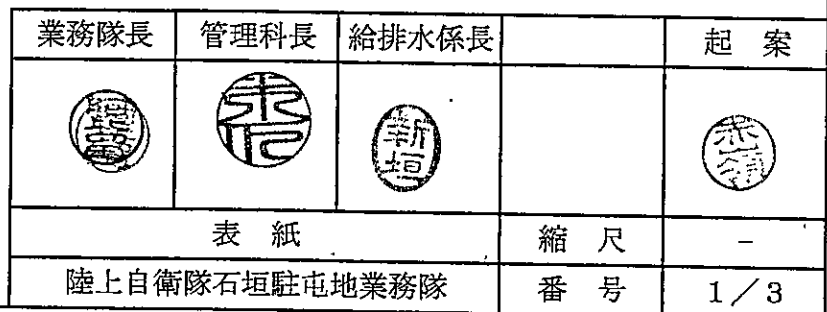 業務隊長 管理科長 給排水係長 起 案
新垣 赤嶺
表 紙 縮 尺 -
陸上自衛隊石垣駐屯地業務隊 番 号 1/3